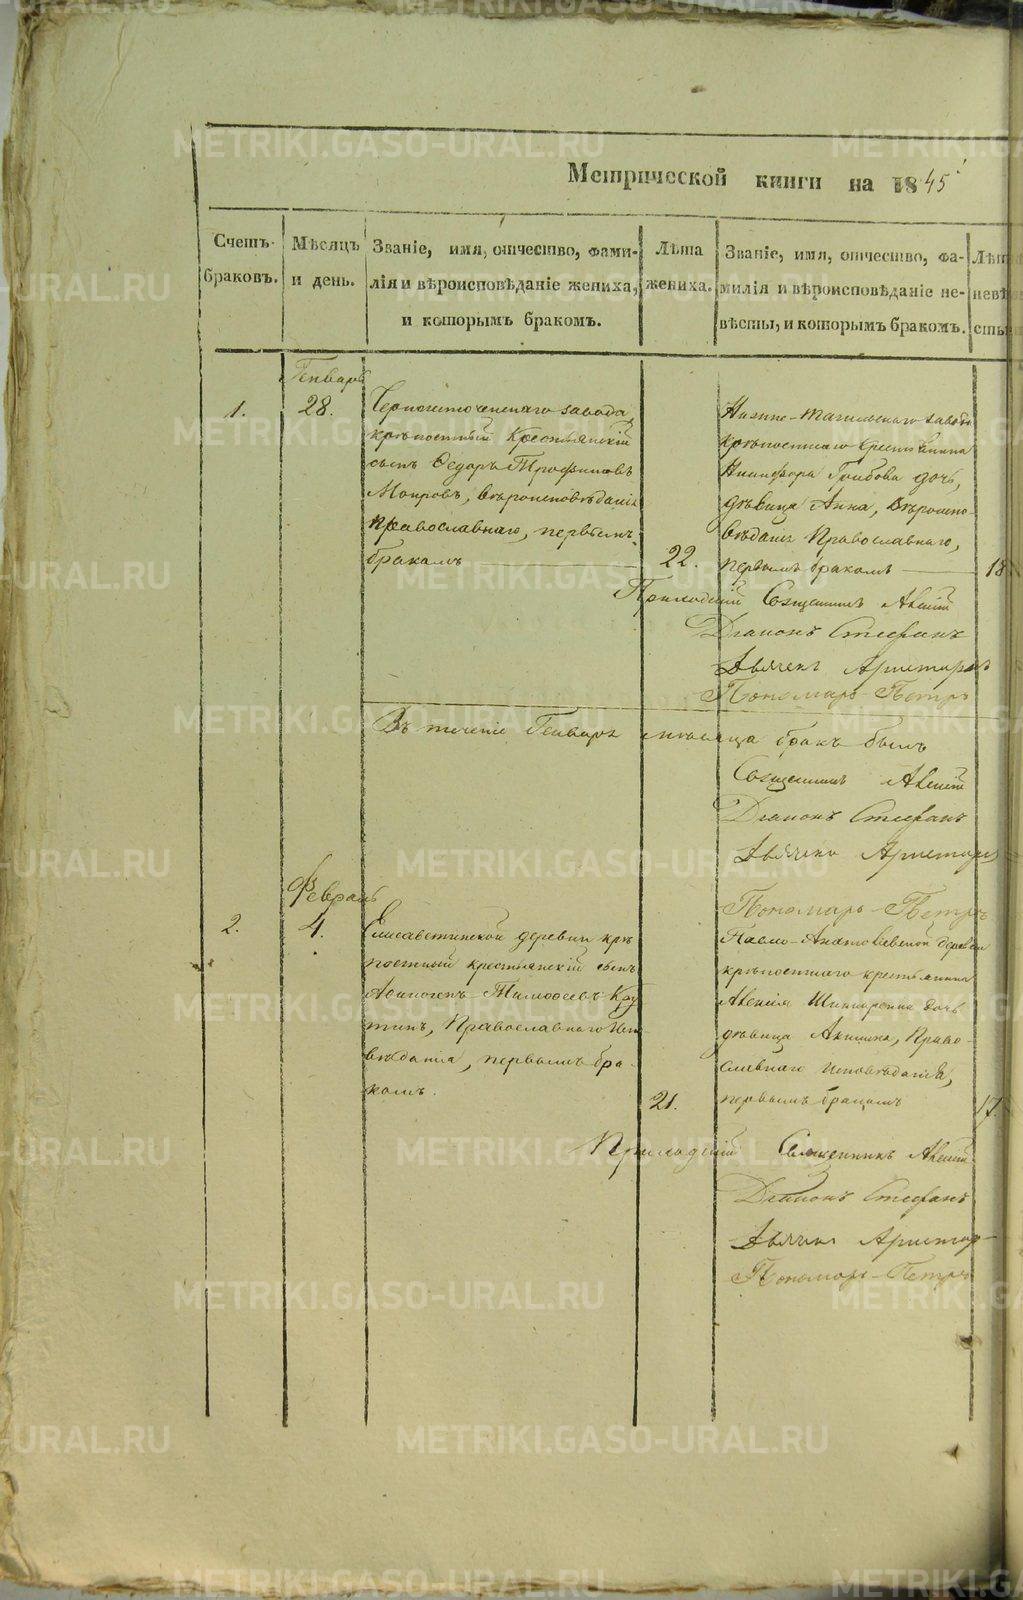 Метрической книги на 1845
Счетъ браковъ.
Мѣсяцъ и день.
Званіе, имя, отчество, фами-
лія и вѣроисповѣданіе жениха,
и которымъ бракомъ.
Лѣта
жениха.
Званіе, имя, отчество, фа-
милія и вѣроисповѣданіе не-
вѣсты, и которымъ бракомъ.
Генварь
1.
28.
Черноисточенскаго завода
крѣпостный Крестьянскій
сынъ Ѳедоръ Трофимовъ
вѣроисповѣданія
Православнаго, первымъ
бракомъ
22.
Нижне-Тагильскаго завода
крѣпостнаго крестьянина
Никифора Грибова дочь,
дѣвица Анна, вѣроиспо-
вѣданія Православнаго,
первымъ бракомъ
18
Священникъ Алексій
Діаконъ Стефанъ
Дьячекъ Аристархъ
Пономарь Петръ
Въ теченіе Генваря мѣсяца бракъ былъ
Священникъ Алексій
Діаконъ Стефанъ
Дьячекъ Аристархъ
Пономарь Петръ
Февраль
2.
4.
Елисаветинской деревни крѣ
постный крестьянскій сынъ
Тимоѳеевъ Кру
тинъ, Православнаго испо
вѣданія, первымъ бра-
комъ.
21.
Павло-Анатольевской деревни
крѣпостнаго крестьянина
Алексія дочь
дѣвица Право-
славнаго исповѣданія,
первымъ бракомъ
17.
Священникъ Алексій
Діаконъ Стефанъ
Дьячекъ Аристар-
Пономарь Петръ
METRIKI.GASO-URAL.RU